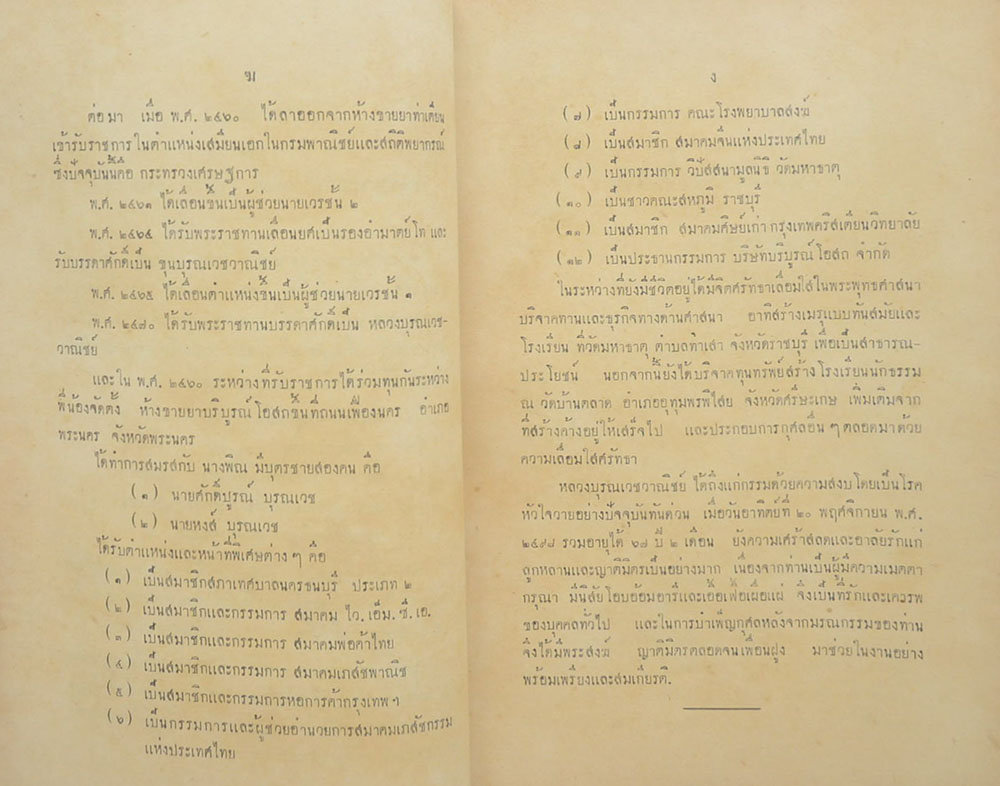 ฆ
ต่อมา เมื่อ พ.ศ. ๒๔๖๐ ได้ลาออกจากห้างขายยาท่าเตียน
เข้ารับราชการในตำแหน่งเสมียนเอกในกรมพาณิชย์และสถิติพยากรณ์
ซึ่งปัจจุบันนี้คือ กระทรวงเศรษฐการ
พ.ศ. ๒๔๖๑ ได้เลื่อนขึ้นเป็นผู้ช่วยนายเวรชั้น ๒
พ.ศ. ๒๔๖๔ ได้รับพระราชทานเลื่อนยศเป็นรองอำมาตย์โท และ
รับบรรดาศักดิ์เป็น ขุนบุรณเวชวาณิชย์
พ.ศ. ๒๔๖๕ ได้เลื่อนตำแหน่งขึ้นเป็นผู้ช่วยนายเวรชั้น ๑
พ.ศ. ๒๔๘๐ ได้รับพระราชทานบรรดาศักดิ์เป็น หลวงบุรณเวช-
วาณิชย์
และใน พ.ศ. ๒๔๖๐ ระหว่างที่รับราชการได้ร่วมทุนกันระหว่าง
พี่น้องจัดตั้ง ห้างขายยาบริบูรณ์โอสถขึ้นที่ถนนเฟื่องนคร อำเภอ
พระนคร จังหวัดพระนคร
ได้ทำการสมรสกับ นางพิณ มีบุตรชายสองคน คือ
(๑) นายศักดิ์บูรณ์ บุรณเวช
(๒) นายหงส์ บุรณเวช
ได้รับตำแหน่งและหน้าที่พิเศษต่าง ๆ คือ
(๑) เป็นสมาชิกสภาเทศบาลนครธนบุรี ประเภท ๒
(๒) เป็นสมาชิกและกรรมการ สมาคม ไว.เอ็ม.ซี.เอ.
(๓) เป็นสมาชิกและกรรมการ สมาคมพ่อค้าไทย
(๔) เป็นสมาชิกและกรรมการ สมาคมเภสัชพาณิช
(๕) เป็นสมาชิกและกรรมการหอการค้ากรุงเทพฯ
(๖) เป็นกรรมการและผู้ช่วยอำนวยการสมาคมเภสัชกรรม
แห่งประเทศไทย
ง
(๗) เป็นกรรมการ คณะโรงพยาบาลสงฆ์
(๘) เป็นสมาชิก สมาคมจีนแห่งประเทศไทย
(๙) เป็นกรรมการ วิปัสสนามูลนิธิ วัดมหาธาตุ
(๑๐) เป็นชาวคณะสหภูมิ ราชบุรี
(๑๑) เป็นสมาชิก สมาคมศิษย์เก่า กรุงเทพคริสเตียนวิทยาลัย
(๑๒) เป็นประธานกรรมการ บริษัทบริบูรณ์โอสถ จำกัด
ในระหว่างที่ยังมีชีวิตอยู่ได้มีจิตศรัทธาเลื่อมใสในพระพุทธศาสนา
บริจาคทานและธุรกิจทางด้านศาสนา อาทิสร้างเมรุแบบทันสมัยและ
โรงเรียน ที่วัดมหาธาตุ ตำบลท่าเสา จังหวัดราชบุรี เพื่อเป็นสาธารณ-
ประโยชน์ นอกจากนี้ยังได้บริจาคทุนทรัพย์สร้างโรงเรียนนักธรรม
ณ วัดบ้านตลาด อำเภออุทุมพรพิไสย จังหวัดศรีษะเกษ เพิ่มเติมจาก
ที่สร้างค้างอยู่ให้เสร็จไป และประกอบการกุศลอื่น ๆ ตลอดมาด้วย
ความเลื่อมใสศรัทธา
หลวงบุรณเวชวาณิชย์ ได้ถึงแก่กรรมด้วยความสงบโดยเป็นโรค
หัวใจวายอย่างปัจจุบันทันด่วน เมื่อวันอาทิตย์ที่ ๒๐ พฤศจิกายน พ.ศ.
๒๔๙๘ รวมอายุได้ ๖๗ ปี ๒ เดือน ยังความเศร้าสลดและอาลัยรักแก่
ลูกหลานและญาติมิตรเป็นอย่างมาก เนื่องจากท่านเป็นผู้มีความเมตตา
กรุณา มีนิสัยโอบอ้อมอารีและเอื้อเฟื้อเผื่อแผ่ จึงเป็นที่รักและเคารพ
ของบุคคลทั่วไป และในการบำเพ็ญกุศลหลังจากมรณกรรมของท่าน
จึงได้มีพระสงฆ์ ญาติมิตรตลอดจนเพื่อนฝูง มาช่วยในงานอย่าง
พร้อมเพรียงและสมเกียรติ.